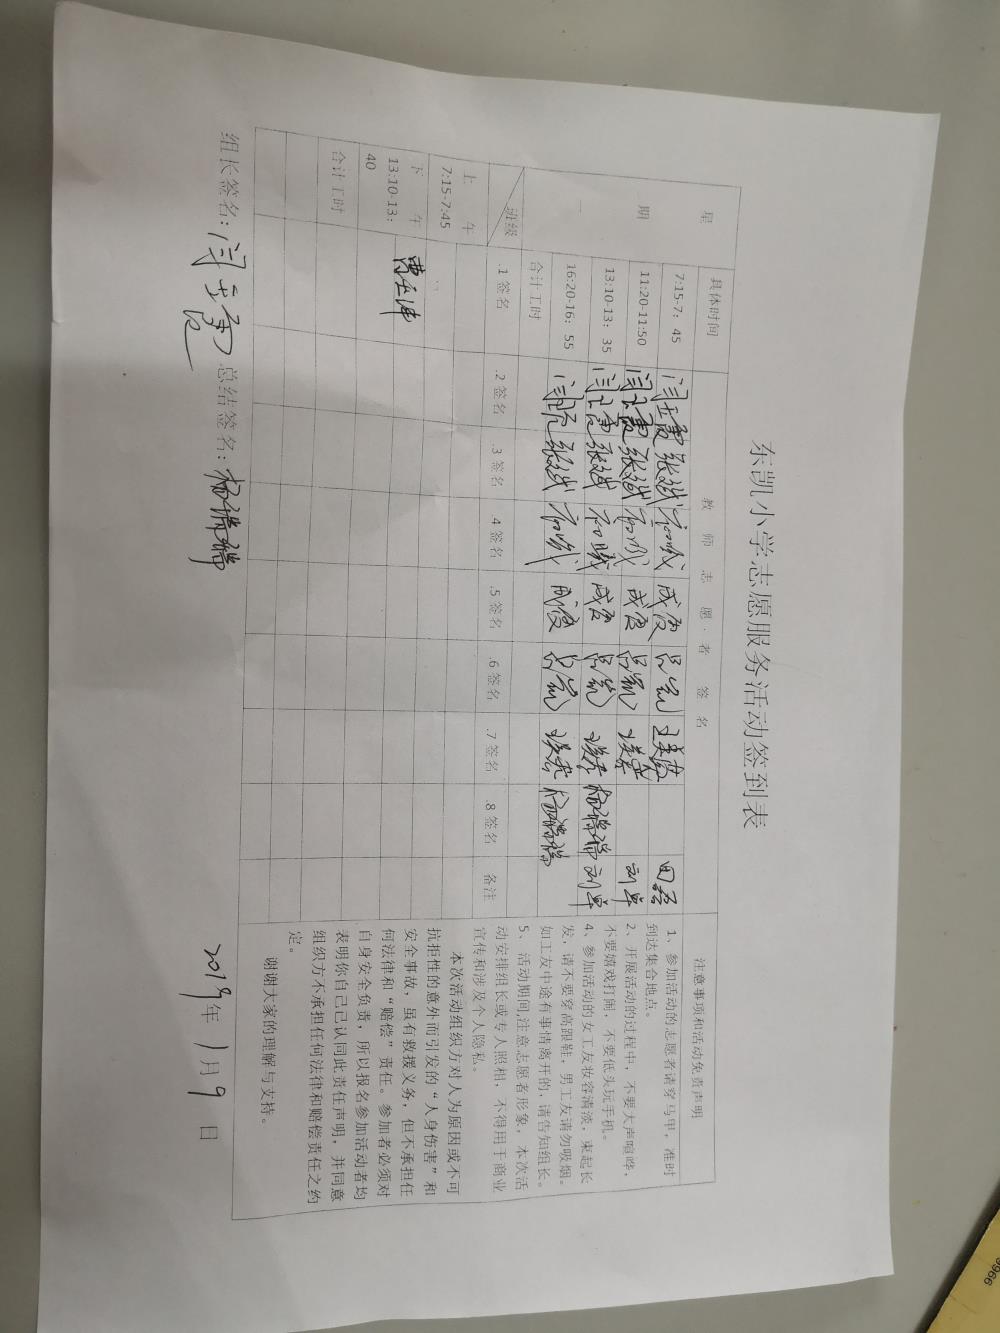 东凯小学志愿服务活动签到表
星期一
具体时间 教师志愿者签名 注意事项和活动免责声明
7:15-7：45 张斌 成俊 吕凯 田磊
11:20-11:50 张斌 成俊 吕凯 刘卓
13:10-13：35 张斌 成俊 吕凯 杨瑞瑞 刘卓
16:20-16：55 张斌 成俊 吕凯 杨瑞瑞
合计工时
班级 .1签名 .2签名 .3签名 .4签名 .5签名 .6签名 .7签名 .8签名 备注
上午
7:15-7:45
下午
13:10-13：
40
合计工时
1、参加活动的志愿者请穿马甲，准时
到达集合地点。
2、开展活动的过程中，不要大声喧哗，
不要嬉戏打闹，不要低头玩手机。
4、参加活动的女工友妆容清淡，束起长
发，请不要穿高跟鞋，男工友请勿吸烟。
如工友中途有事情离开的，请告知组长。
5、活动期间,注意志愿者形象，本次活
动安排组长或专人照相，不得用于商业
宣传和涉及个人隐私。
本次活动组织方对人为原因或不可
抗拒性的意外而引发的“人身伤害”和
安全事故，虽有救援义务，但不承担任
何法律和“赔偿”责任。参加者必须对
自身安全负责，所以报名参加活动者均
表明你自己已认同此责任声明，并同意
组织方不承担任何法律和赔偿责任之约
定。
谢谢大家的理解与支持。
组长签名： 总结签名：杨瑞瑞
2019年1月9日
9966